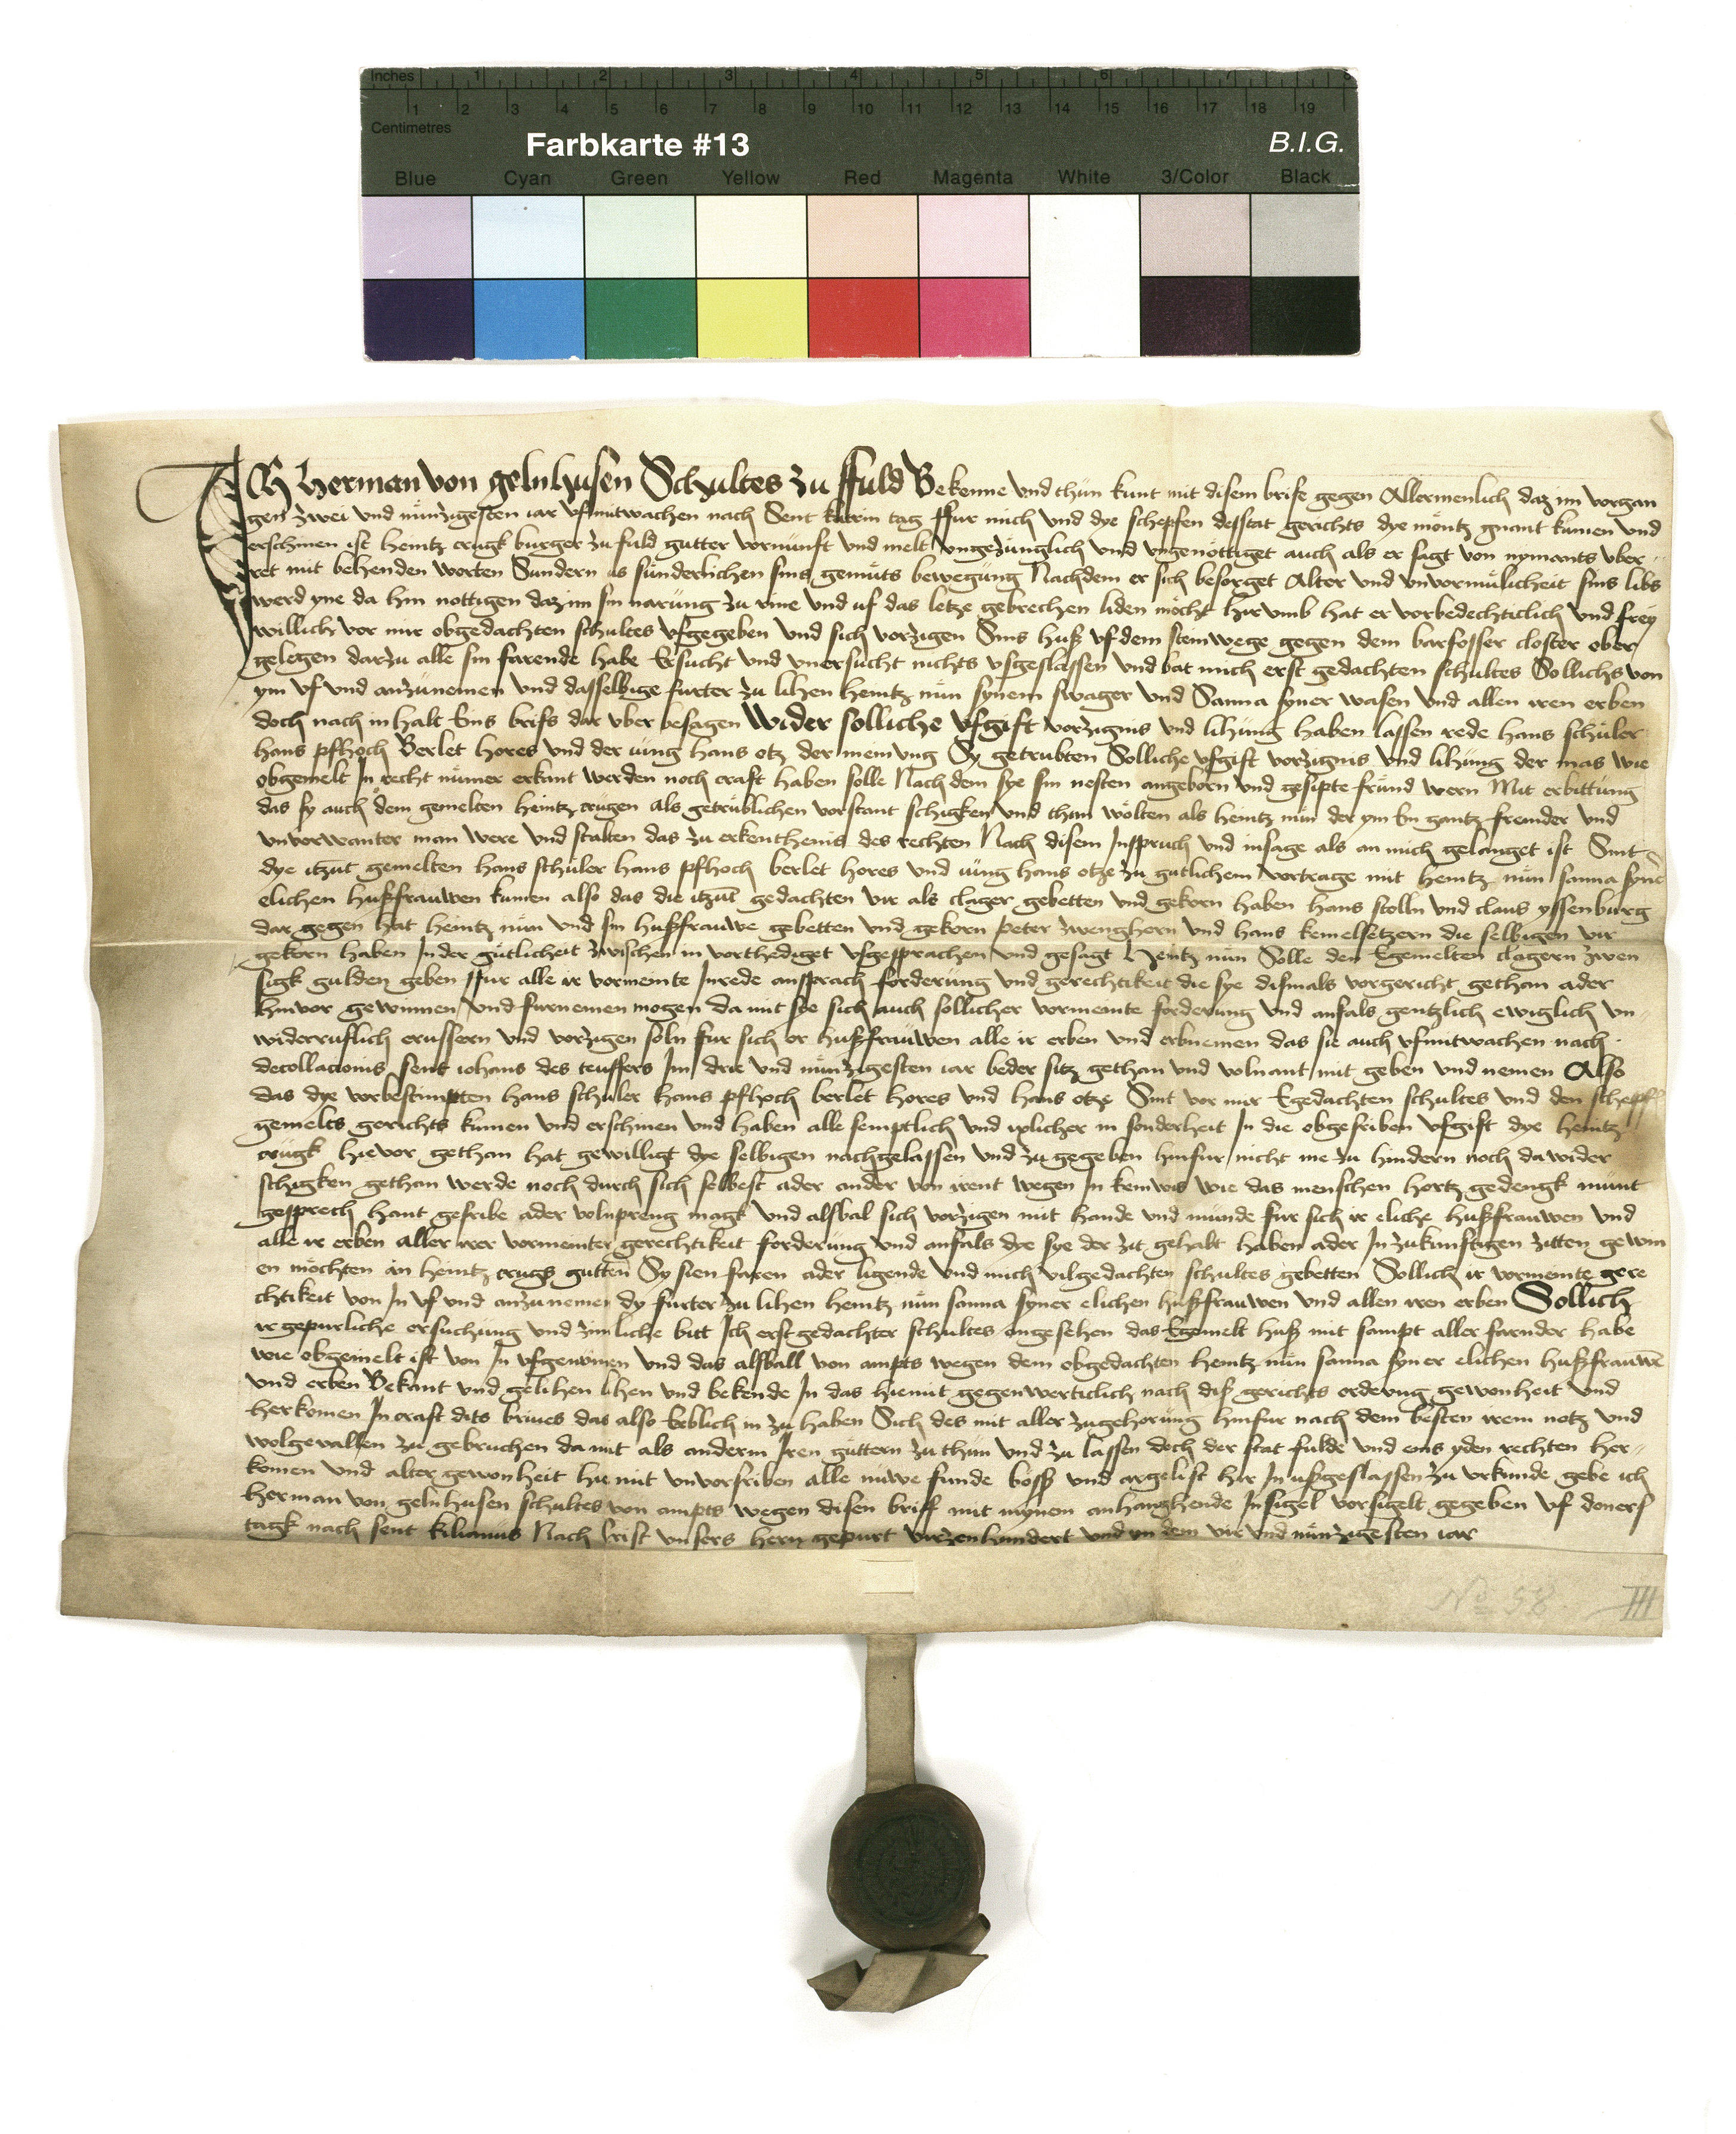 Inches 1 2 3 4 5 6 7 8
1 2 3 4 5 6 7 8 9 10 11 12 13 14 15 16 17 18 19
Centimetres
Farbkarte #13 B.I.G.
Blue Cyan Green Yellow Red Magenta White 3/Color Black
Ich Herman von gelnhusen Schultes zu ffuld Bekenne und thün kunt mit disem brife gegen Allermenlich daz im vorgan
gen zwei und nünzigesten iar uf mitwachen nach Sent katrin tag ffur mich und dye schepfen desstat gerichts dye möntz gnant kumen und
erschinen ist heintz crugk burger zu fuld gutter vornunft und melt ungezünglich und ungenöttiget auch als er sagt von nymants uber
ret mit behenden worten Sundern us sunderlichen sins gemüts bewegüng Nachdem er sich besorget Alter und unvormülicheit sins libs
werd yne da hin nottigen daz im sin narüng zu rine und uf das letze gebrechen liden möcht hir umb hat er vorbedechticlich und frey
willich vor mir obgedachten schultes ufgegeben und sich vorzigen Sins huß uf dem steinwege gegen dem barfosser closter ober
gelegen darzu alle sin farende habe Ersucht und unersucht nichts usgeslassen und bat mich erst gedachten schultes Sollichs von
ym uf und anzünemen und dasselbige furter zu lihen heintz nün synem swager und Sanna syner wasen und allen iren erben
doch nach inhalt Eins brifs dar uber besagen Wider solliche ufgift vorzignis und lihüng haben lassen rede hans schüler
hans pfhoch Berlet hores und der iüng hans otz der meinung Sy getrubten Solliche ufgift vorzignis und lihüng der mas wie
obgemelt In recht nümer erkant werden noch craft haben solle Nach dem sye sin nesten angeborn und gesipte fründ wern Mit erbittung
das sy auch dem gemelten heintz crugen als getrüblichen vorstant schigken und thun wölten als heintz nün der ym Ein gantz fremder und
unvorwanter man were und stalten das zu erkenthenis des rechten Nach disem Insspruch und insage als an mich gelanget ist Sint
dye itzut gemelten hans schüler hans pfhoch berlet hores und iüng hans otze zu gutlichem vortrage mit heintz nün sanna syner
elichen hußfrauwen kumen also das die itzut gedachten vir als clager gebetten und gekorn haben hans stolln und claus yssenburg
dar gegen hat heintz nün und sin hußfrauwe gebetten und gekorn peter zwenghorn und hans kemelsetzern die selbigen vir
gekorn haben In der gütlicheit zwischen in vorthediget usgesprachen und gesagt Heintz nün Solle den Egemelten clagern zwen
sigk gulden geben ffur alle ir vormeinte Inrede ansprach forderüng und gerechtikeit die sye dismals vorgericht gethan ader
hinvor gewinnen und furnemen mogen da mit sie sich auch sollicher vormeinte forderung und anfals gentzlich ewiglich un
widerruflich erussern und vorzigen soln fur sich er hußfrauwen alle ir erben und erbnemen das sie auch uf mitwachen nach
decollacionis sent iohans des teuffers Im drie und nünzigesten iar beder sitz gethan und volnant mit geben und nemen Also
das dye vorbestimpten hans schüler hans pfhoch berlet hores und hans otze Sint vor mir Egedachten schultes und den schepff
gemelts gerichts kumen und erschinen und haben alle semptlich und iglicher in sonderheit In die obgesriben ufgift dye heintz
crugk hievor gethan hat gewilligt dye selbigen nachgelassen und zu gegeben hinfur nicht me zu hindern noch da wider
schigken gethan werde noch durch sich selbest ader ander von irent wegen In keinwis wie das menschen hertz gedengk münt
gesprech hant gesribe ader volnpreng magk und alsbal sich vorzigen mit hande und münde fur sich ir eliche hußfrauwen und
alle ir erben aller irer vormeinter gerechtikeit forderüng und anfals dye sye der zit gehabt haben ader In zukunftigen zitten gewin
en möchten an heintz crugs gutten Sy sien faren ader ligende und mich vilgedachten schultes gebetten Sollich ir vormeinte gere
chtikeit von In uf und anzunemen dy furter zu lihen heintz nün sanna syner elichen hußfrauwen und allen iren erben Sollich
ir gepurliche ersuchüng und zimliche bitt Ich erstgedachter schultes angesehen das Egemelt huß mit sampt aller farnder habe
wie obgemelt ist von In ufgenümen und das alsball von ampts wegen dem obgedachten heintz nün sanna syner elichen hußfrauwen
und erben Bekant und gelihen lihen und bekende In das hiemit gegenwerticlich nach diß gerichts orderung gewonheit und
herkomen In craft dits brives das also Erblich in zu haben Sich des mit aller zugehorüng hinfur nach dem besten irem notz und
wolgevallen zu gebruchen da mit als anderin Iren güttern zu thün und zu lassen doch der stat fulde und eins yden rechten her
komen und alter gewonheit hie mit unvorsriben alle nuwe funde boss und argelist hir In ußgeslassen zu urkunde gebe ich
Herman von gelnhusen schultes von ampts wegen disen briff mit mynem anhanghende Insigel vorsigelt gegeben uf doners
tagk nach sent kilianus Nach Crist unsers hern gepurt virzenhundert und yn dem vir und nünzigesten iar
No 58. III